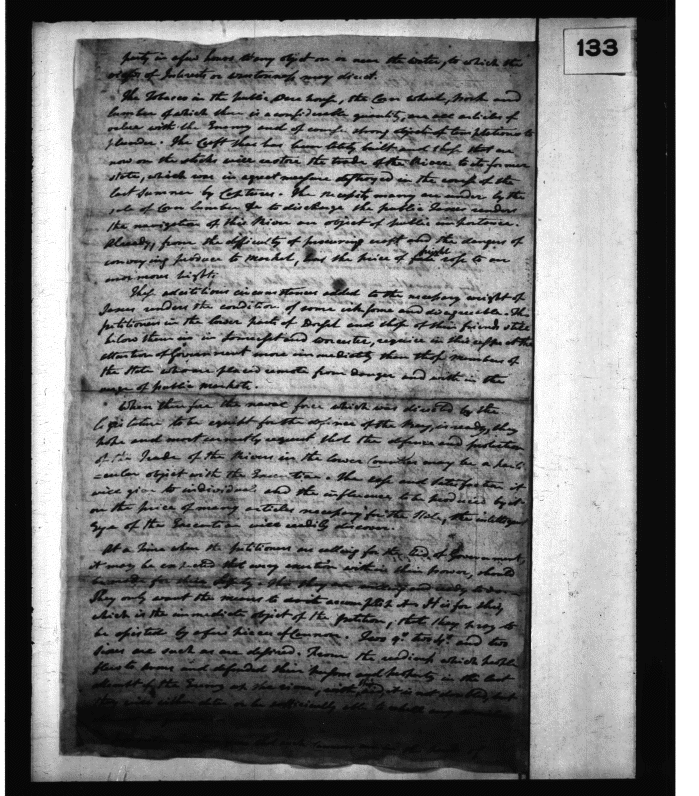 133
party in a few hours to any object on or near the water, to which the
of Interest or wantonness may direct.
The Tobacco in the public Ware house, the Corn Wheat, Pork and
lumber of which there is a considerable quantity, are all articles of
value with the Enemy and of course strong objects of temptations to
plunder. The Craft that has been lately built and those that are
now on the stocks will restore the trade of the River to its former
state, which was in a great measure destroyed in the course of the
last Summer by Captures. The necessity many are under by the
sale of Corn lumber &c to discharge the public Taxes renders
the navigation of this River an object of public importance.
Already, from the difficulty of procuring craft and the dangers of
conveying produce to Market, has the price of
freight
rose to an
enormous hight.
These additional circumstances added to the necessary weight of
Taxes renders the condition of some irksome and disagreeable. The
petitioners in the lower parts of Dorset and those of their friends still
below them in Somerset and Worcester, require in this respect the
attention of Government more immediately than those members of
the State who are placed remote from danger and with in the
of public markets.
When therefore the naval force which was directed by the
Legislature to be equipt for the defence of the Bay, is ready, they
hope and most earnestly request that the defence and protection
of the Trade of the Rivers in the lower Counties may be a parti
=cular object with the Executive. The ease and satisfaction it
will give to individuals and the influence to be produced by it
on the price of many articles necessary for the State, the intelligent
Eye of the Executive will readily discover.
At a Time when the petitioners are calling for the Aid of Government,
it may be expected that every exertion within their power, should
be made for their Safety. This they are willing and ready to do.
They only want the means to accomplish it. It is for this,
which is the immediate object of the petition, that they pray to
be assisted by a few pieces of Cannon. Two 9s. two 4s. and two
are such as are desired. From the readiness which
to arms and defended their persons and property in the last
of the Enemy up the river, with
it is not doubted, but
they will either deter or be sufficiently able to